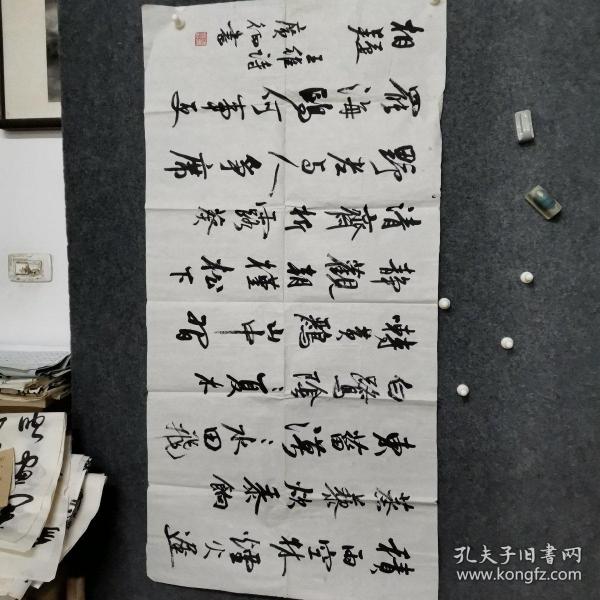 積雨空林煙火遲
蒸藜炊黍餉
東菑漠々水田飛
白鷺陰々夏木
囀黃鸝山中習
靜觀朝槿松下
清齋折露葵
野老與人爭席
罷海鷗何事更
相疑
王維詩
廣 書
孔夫子旧書网
www.kongfz.com